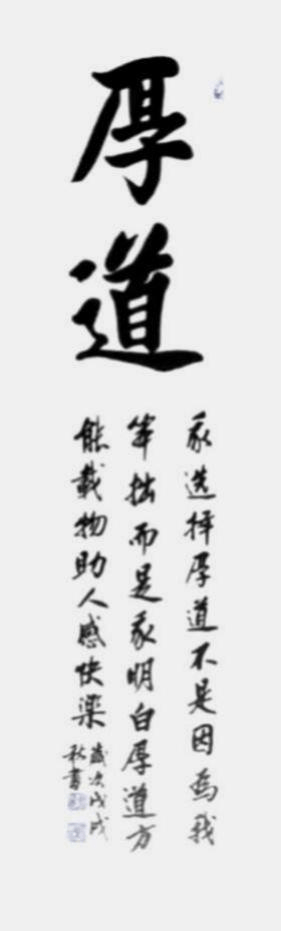 厚道
我选择厚道不是因為我
笨拙而是我明白厚道方
能載物助人感快樂
歲次戊戌
秋書